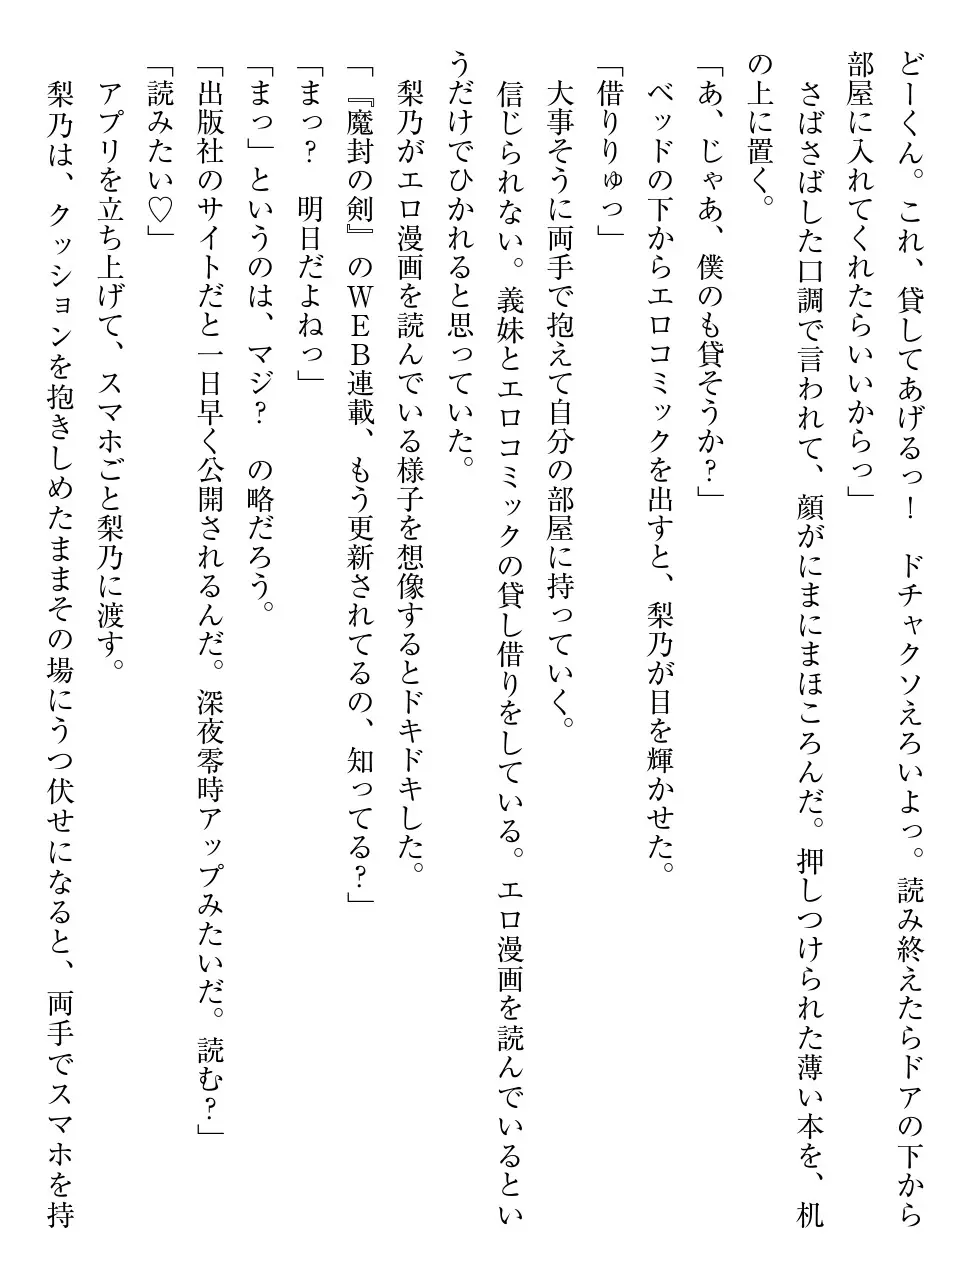 どーくん。これ、貸してあげるっ！　ドチャクソえろいよっ。読み終えたらドアの下から
部屋に入れてくれたらいいからっ」
　さばさばした口調で言われて、顔がにまにまほころんだ。押しつけられた薄い本を、机
の上に置く。
「あ、じゃあ、僕のも貸そうか？」
　ベッドの下からエロコミックを出すと、梨乃が目を輝かせた。
「借りりゅっ」
　大事そうに両手で抱えて自分の部屋に持っていく。
　信じられない。義妹とエロコミックの貸し借りをしている。エロ漫画を読んでいるとい
うだけでひかれると思っていた。
　梨乃がエロ漫画を読んでいる様子を想像するとドキドキした。
「『魔封の剣』のＷＥＢ連載、もう更新されてるの、知ってる？」
「まっ？　明日だよねっ」
「まっ」というのは、マジ？　の略だろう。
「出版社のサイトだと一日早く公開されるんだ。深夜零時アップみたいだ。読む？」
「読みたい♡」
　アプリを立ち上げて、スマホごと梨乃に渡す。
　梨乃は、クッションを抱きしめたままその場にうつ伏せになると、両手でスマホを持